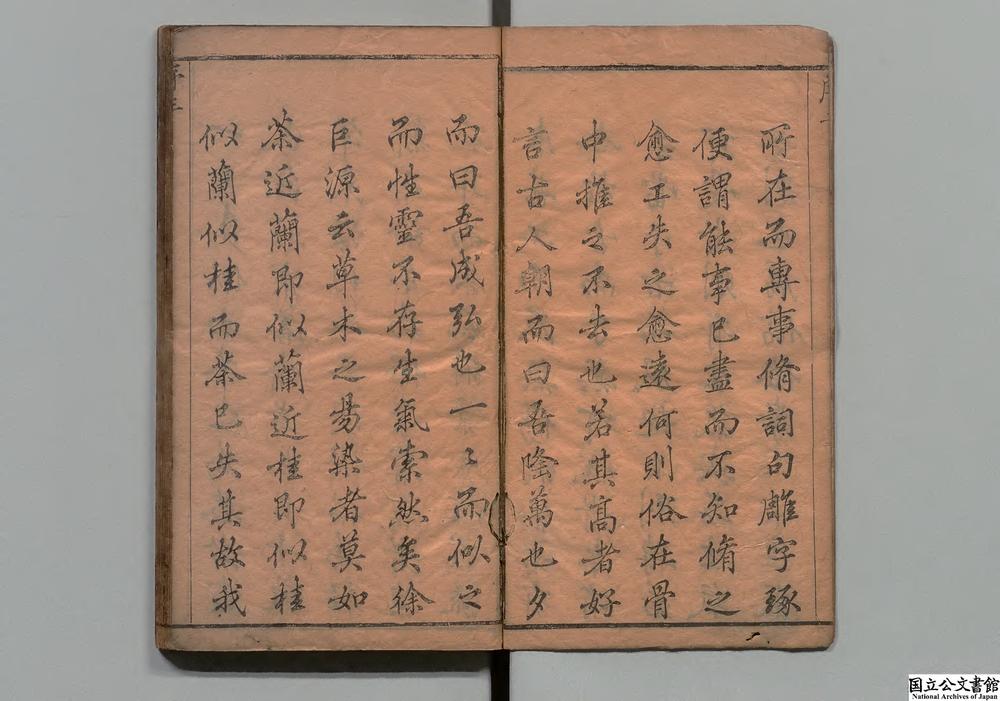 所在而專事脩詞句雕字琢
便謂能事已盡而不知脩之
愈工失之愈遠何則俗在骨
中推之不去也若其高者好
言古人朝而曰吾陰萬也夕
而曰吾成弘也一〻而似之
而性靈不存生氣索然矣徐
巨源云草木之易染者莫如
茶近蘭即似蘭近桂即似桂
似蘭似桂而茶已失其故我
国立公文書館
National Archives of Japan